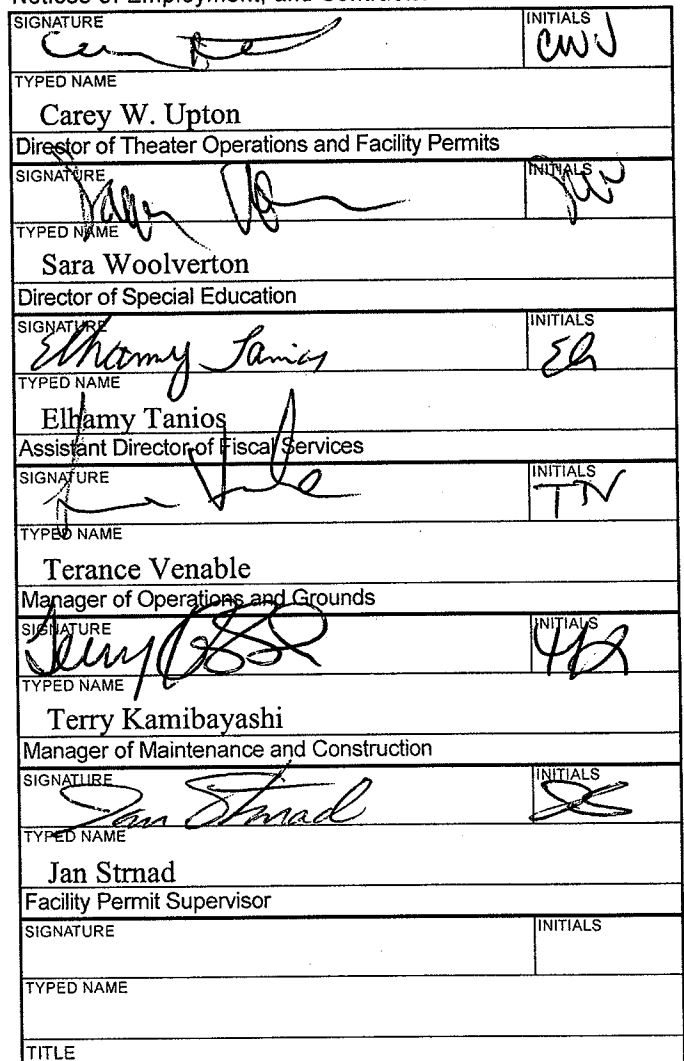 Notices of Employment, and Contracts
SIGNATURE INITIALS
CWU
TYPED NAME
Carey W. Upton
Director of Theater Operations and Facility Permits
SIGNATURE INITIALS
TYPED NAME
Sara Woolverton
Director of Special Education
SIGNATURE INITIALS
Elhamy Tanios
TYPED NAME
Elhamy Tanios
Assistant Director of Fiscal Services
SIGNATURE INITIALS
TV
TYPED NAME
Terance Venable
Manager of Operations and Grounds
SIGNATURE INITIALS
Terry
TYPED NAME
Terry Kamibayashi
Manager of Maintenance and Construction
SIGNATURE INITIALS
Jan Strnad
TYPED NAME
Jan Strnad
Facility Permit Supervisor
SIGNATURE INITIALS
TYPED NAME
TITLE